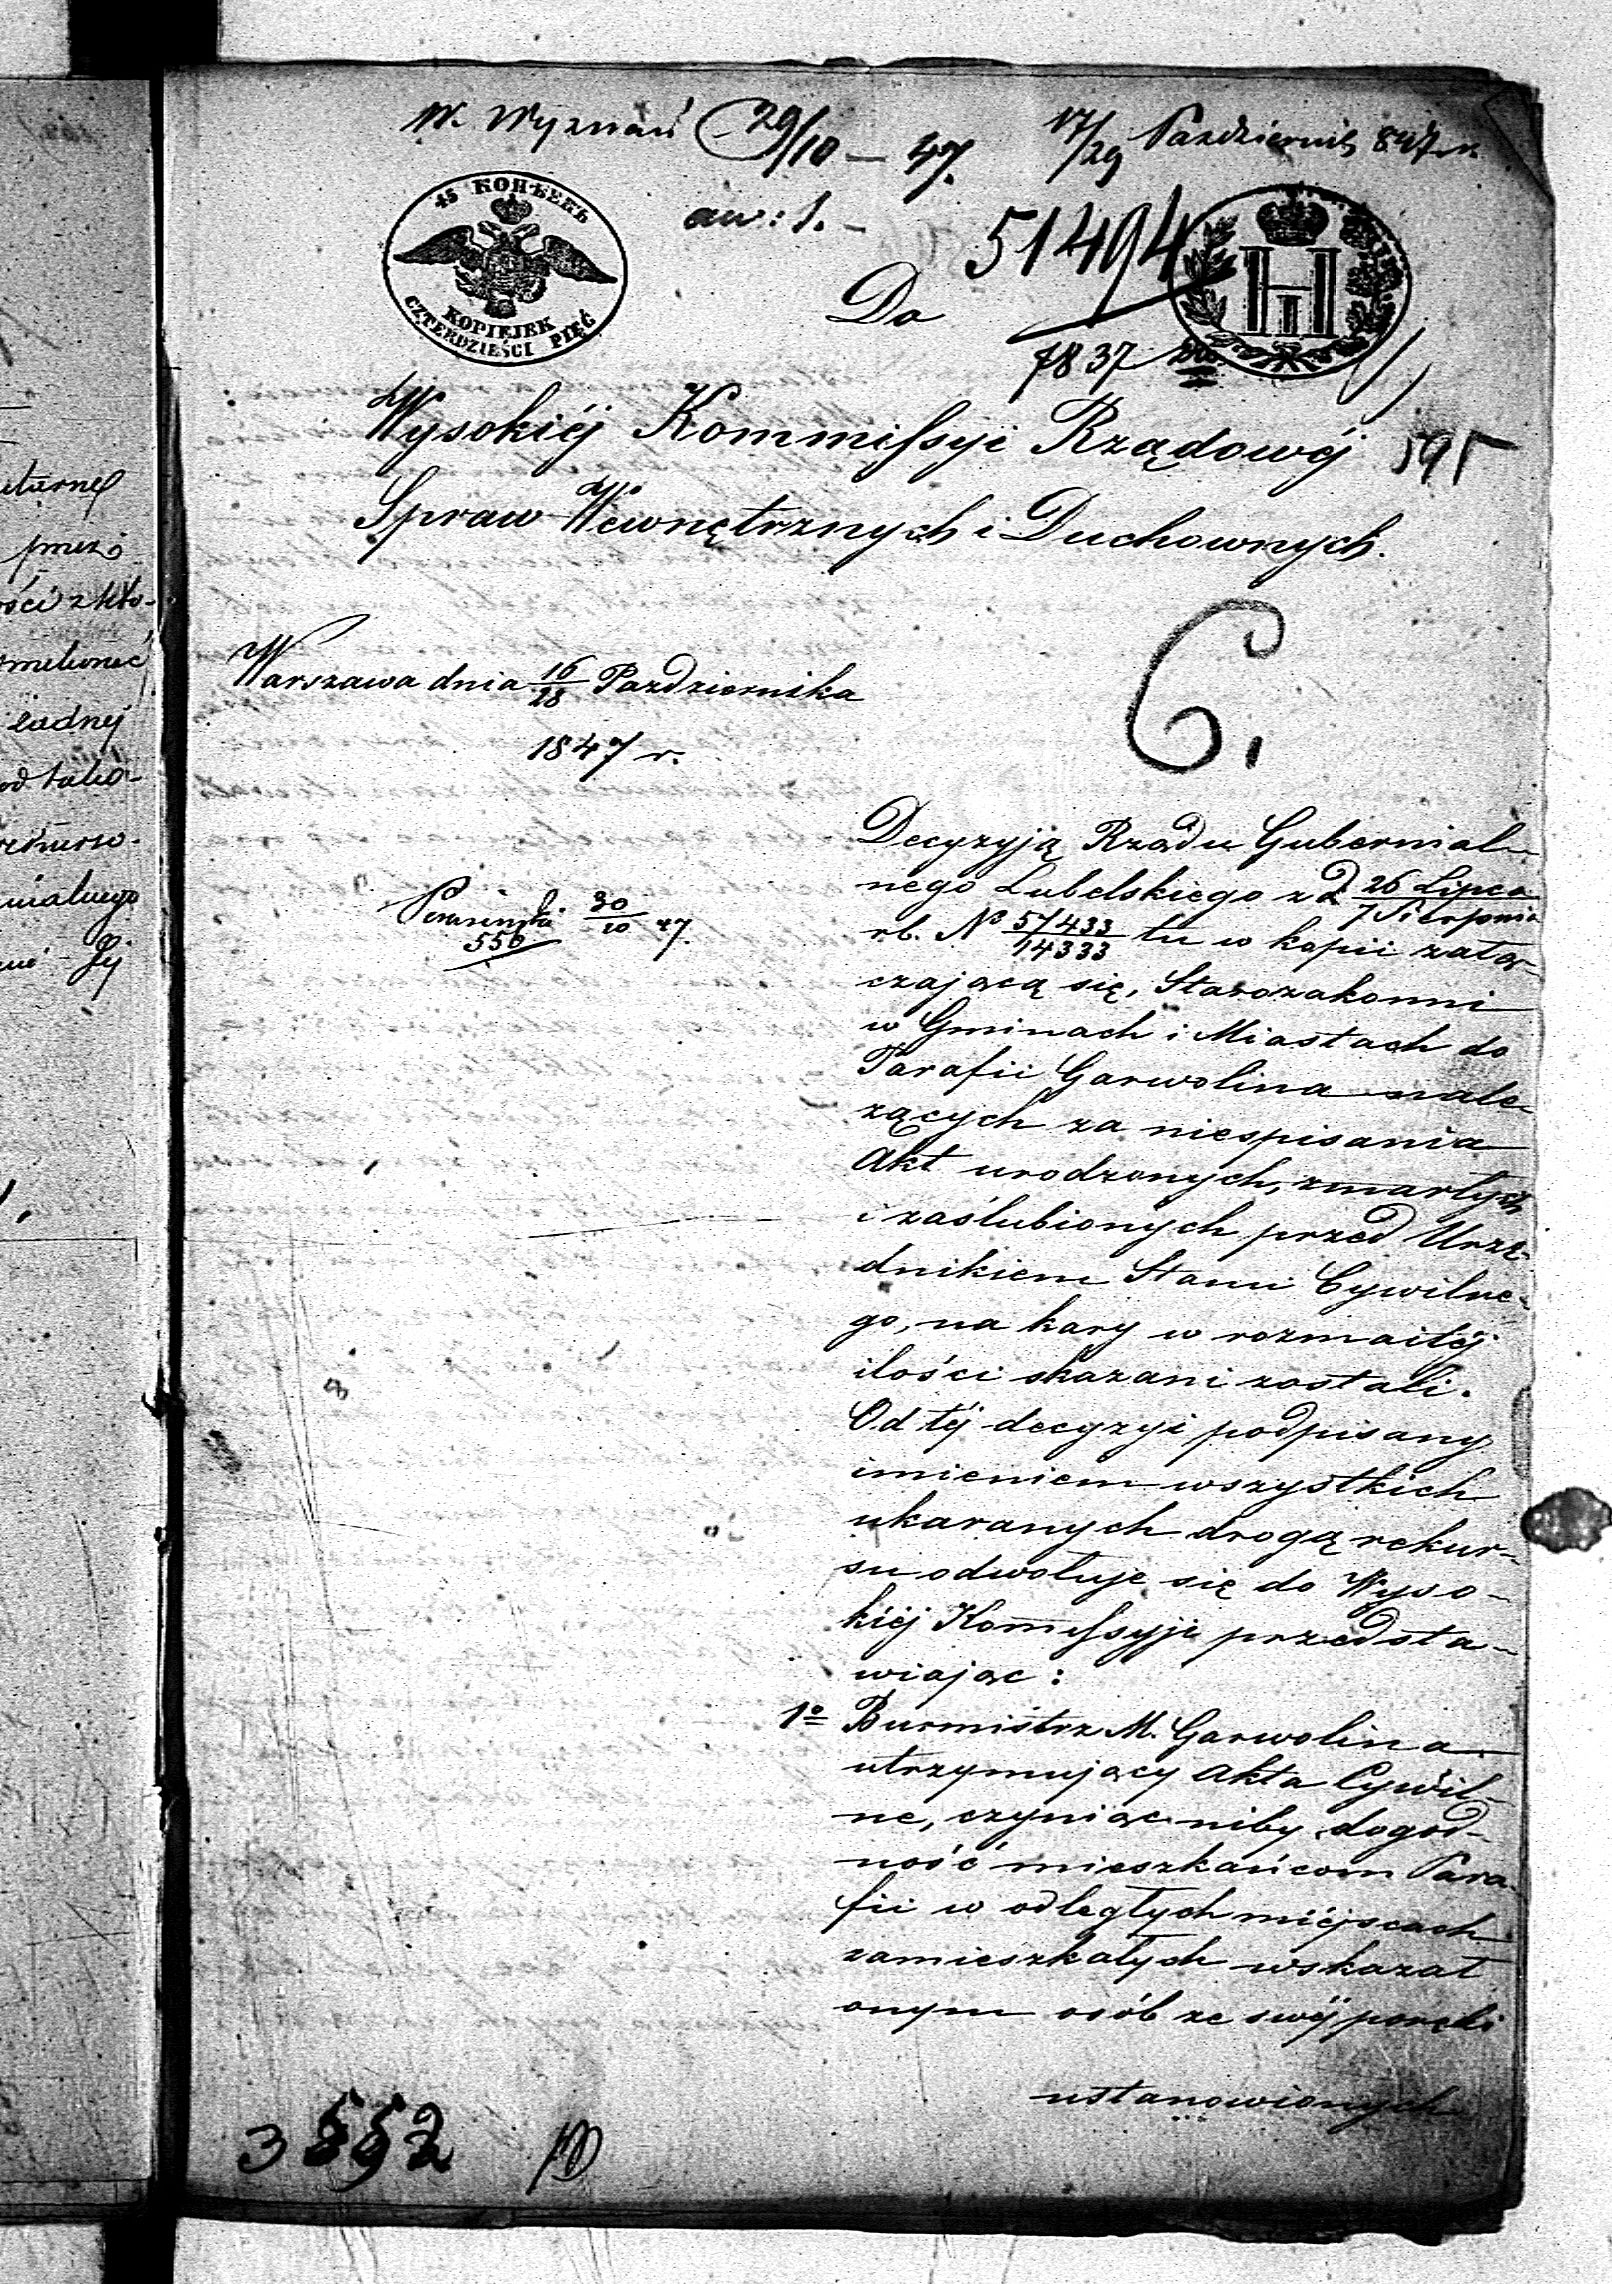 W. Wyznań 29/10 – 47.
17/29 Październik 847 r.
45 КОПѢЕКЪ
KOPIEJEK
CZTERDZIEŚCI PIĘĆ
51494
7837
Do
Wysokiéj Kommissyi Rządowéj
595
Spraw Wewnętrznych i Duchownych.
C.
Warszawa dnia 16/28 Pazdziernika
1847 r.
30/10 47.
556
Decyzyją Rządu Gubernial-
nego Lubelskiego z d 26 Lipca/7 Sierpnia
rb. No 57433/14333 tu w kopii zatą-
czającą się, Starozakonni
w Gminach i Miastach do
Parafii Garwolina nale-
żących za niespisania
Akt urodzonych, zmartych
i zaślubionych przed Urzę-
dnikiem Stanu Cywilne-
go, na kary w rozmaitéj
ilości skazani zostali.
Od téj decyzyi podpisany
imieniem wszystkich
ukaranych drogą rekur-
su odwołuje się do Wyso-
kiéj Komissyji przedsta-
wiając:
1o Burmistrz M. Garwolina
utrzymujący Akta Cywil-
ne, czyniąc niby dogod-
ność mieszkańcom Para-
fii w odległych miéjscach
zamieszkałych wskazał
onym osób ze swéj poręki
ustanowionych
3552
uturnej
przez
ości z któ-
ładnej
od tako-
rekurso-
nialnego